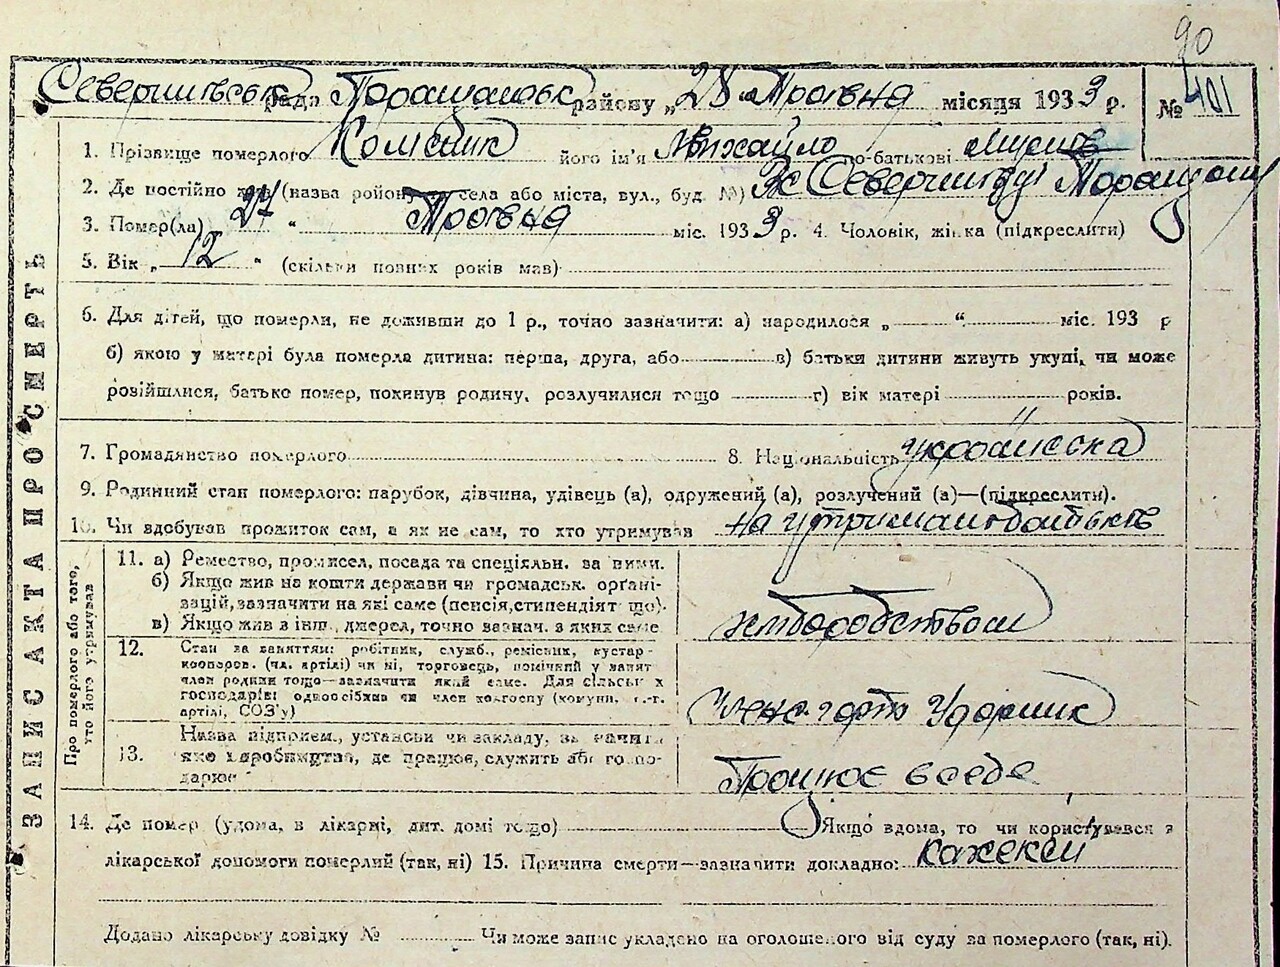 90
рада району „28" Травня місяця 1933 р. № 401
1. Прізвище померлого його ім'я Михайло по-батькові
2. Де постійно (назва району села або міста, вул., буд. №)
3. Помер(ла) 27 " Травня міс. 1933 р. 4. Чоловік, жінка (підкреслити)
5. Вік „ 12 " (скільки повних років мав)
6. Для дітей, що померли, не доживши до 1 р., точно зазначити: а) народилося „ " міс. 193 р
б) якою у матері була померла дитина: перша, друга, або в) батьки дитини живуть укупі, чи може
розійшлися, батько помер, покинув родину, розлучилися тощо г) вік матері років.
7. Громадянство померлого 8. Національність українська
9. Родинний стан померлого: парубок, дівчина, удівець (а), одружений (а), розлучений (а)—(підкреслити).
10. Чи здобував прожиток сам, а як не сам, то хто утримував
ЗАПИС АКТА ПРО СМЕРТЬ
Про померлого або того, хто його утримував
11. а) Ремество, промисел, посада та спеціяльн. за ними.
б) Якщо жив на кошти держави чи громадськ. органі-
зацій, зазначити на які саме (пенсія, стипендіят що).
в) Якщо жив з інш. джерел, точно зазнач. з яких саме
хліборобством
12. Стан за заняттям: робітник, служб., ремісник, кустар-
кооперов. (чл. артілі) чи ні, торговець, помічний у занят
член родини тощо—зазначити який саме. Для сільськ х
господарів: одноосібник чи член колгоспу (комуни, с.-г.
артілі, СОЗ'у)
Ударник
13. Назва підприєм., установи чи закладу, зазначити
яке виробництво, де працює, служить або госпо-
дарює
Працює в себе
14. Де помер (удома, в лікарні, дит. домі тощо) Якщо вдома, то чи користувався з
лікарської допомоги померлий (так, ні) 15. Причина смерти—зазначити докладно:
Додано лікарську довідку № Чи може запис укладено на оголошеного від суду за померлого (так, ні).